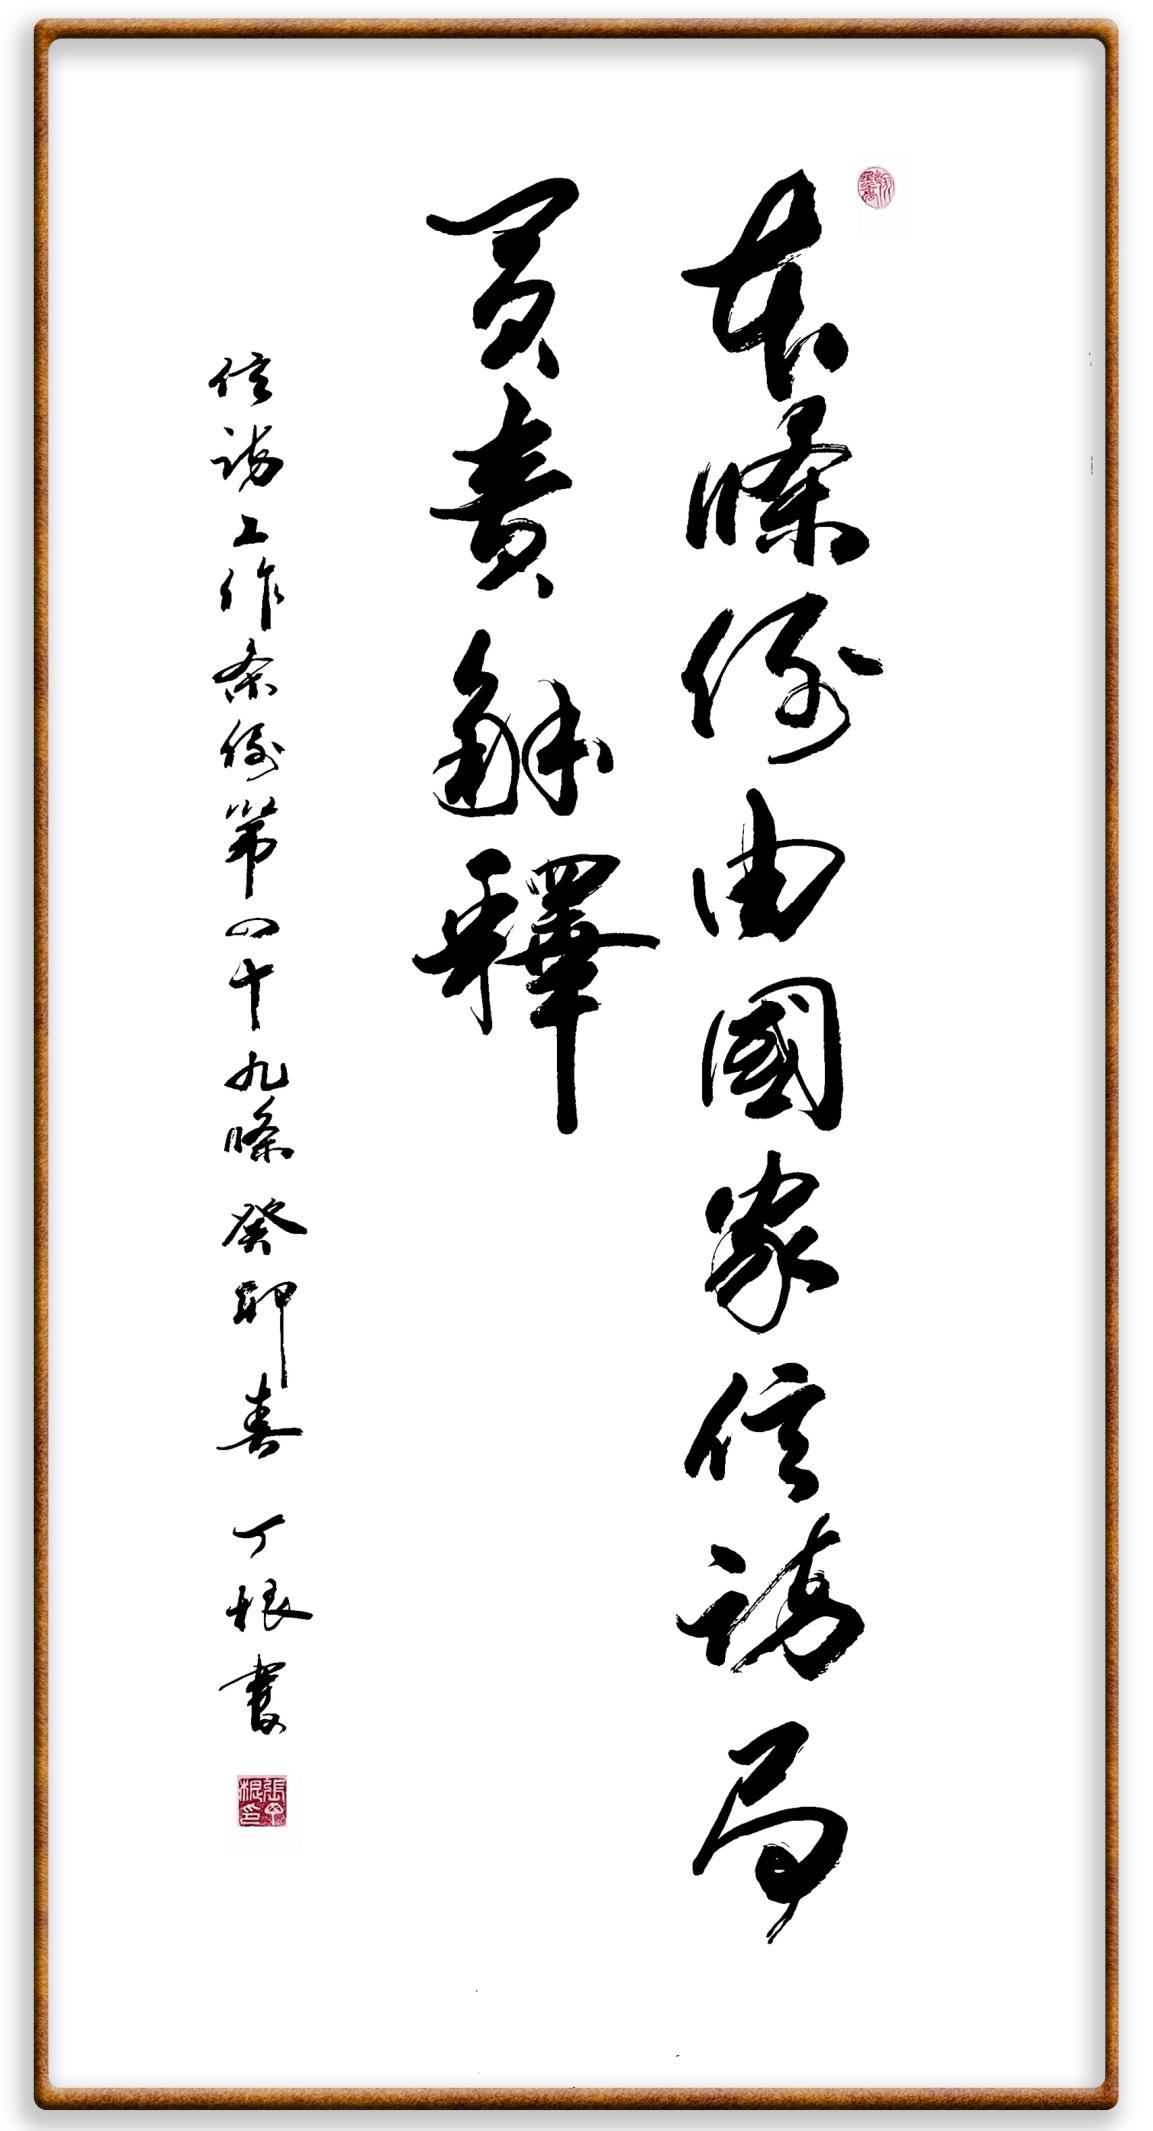 本條例由國家信訪局
負責解釋
信訪工作条例第四十九條 癸卯春 丁根書